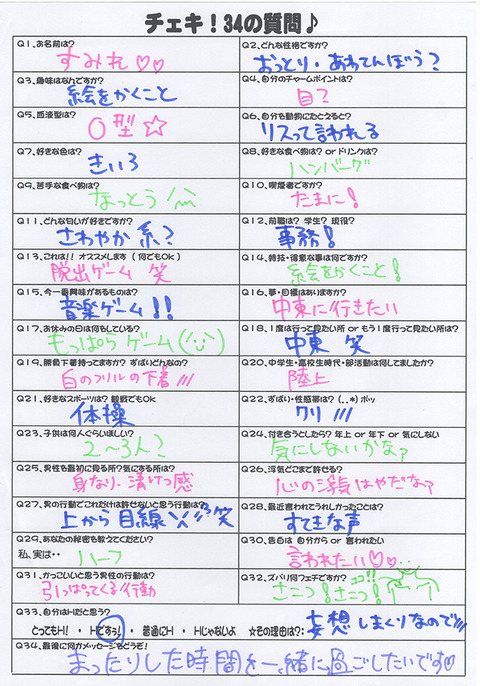 チェキ！34の質問♪
Q1、お名前は？
すみれ♡♡
Q2、どんな性格ですか？
おっとり・あわてんぼう？
Q3、趣味はなんですか？
絵をかくこと
Q4、自分のチャームポイントは？
目？
Q5、血液型は？
O型☆
Q6、自分を動物にたとえると？
リスって言われる
Q7、好きな色は？
きいろ
Q8、好きな食べ物は？ or ドリンクは？
ハンバーグ
Q9、苦手な食べ物は？
なっとう
Q10、喫煙者ですか？
たまに！
Q11、どんな匂いが好きですか？
さわやか系？
Q12、前職は？ 学生？ 現役？
事務！
Q13、これは!! オススメします（何でもOk）
脱出ゲーム 笑
Q14、特技・得意な事は何ですか？
絵をかくこと！
Q15、今一番興味があるものは？
音楽ゲーム！！
Q16、夢・目標はありますか？
中東に行きたい
Q17、お休みの日は何をしている？
もっぱらゲーム(^_^)
Q18、1度は行って見たい所 or もう1度行って見たい所は？
中東 笑
Q19、勝負下着持ってますか？ ずばりどんなの？
白のフリルの下着///
Q20、中学生・高校生時代・部活動は何してましたか？
陸上
Q21、好きなスポーツは？ 観戦でもOk
体操
Q22、ずばり・性感帯は？（.,*）ポッ
クリ///
Q23、子供は何人ぐらいほしい？
2～3人？
Q24、付き合うとしたら？ 年上 or 年下 or 気にしない
気にしないかなァ
Q25、男性を最初に見る所？気にする所は？
身なり、清けつ感
Q26、浮気どこまで許せる？
心の浮気はやだなァ
Q27、男の行動でこれだけは許せないと思う行動は？
上から目線 笑
Q28、最近言われてうれしかったことは？
すてきな声
Q29、あなたの秘密を教えてください？
私、実は・・
ハーフ
Q30、告白は 自分から or 言われたい
言われたい♡♡
Q31、かっこいいと思う男性の行動は？
引っぱってくる行動
Q32、ズバリ何フェチですか？
さこつ！さこつ！
ココ!!
Q33、自分はHだと思う？
とってもH! ・ Hですぅ! ・ 普通にH ・ Hじゃないよ ☆その理由は？：
妄想しまくりなので///
Q34、最後に何かメッセージをどうぞ！
まったりした時間を一緒に過ごしたいです♡